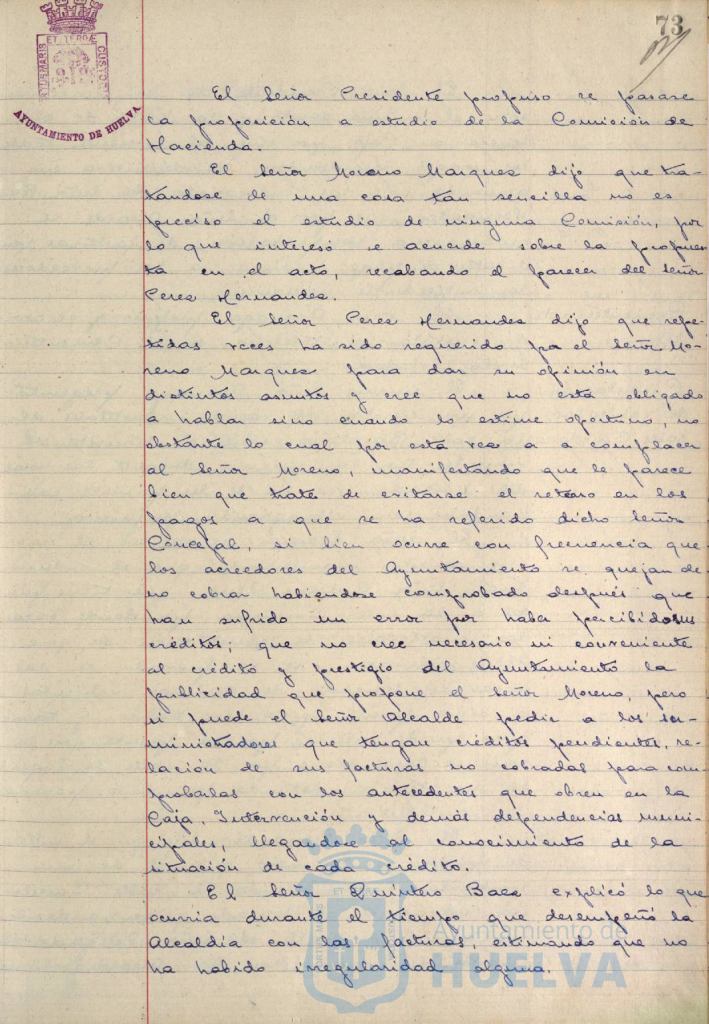 73
PORTUS MARIS ET TERRÆ CUSTODIA
AYUNTAMIENTO DE HUELVA
El Señor Presidente propuso se pasase
la proposición a estudio de la Comisión de
Hacienda.
El Señor Moreno Marquez dijo que tra-
tandose de una cosa tan sencilla no es
preciso el estudio de ninguna Comisión, por
lo que interesó se acuerde sobre la propues-
ta en el acto, recabando el parecer del Señor
Perez Hernandez.
El Señor Perez Hernandez dijo que repe-
tidas veces ha sido requerido por el Señor Mo-
reno Marquez para dar su opinión en
distintos asuntos y cree que no está obligado
a hablar sino cuando lo estime oportuno, no
obstante lo cual por esta vez a a complacer
al Señor Moreno, manifestando que le parece
bien que trate de evitarse el retraso en los
pagos a que se ha referido dicho Señor
Concejal, si bien ocurre con frecuencia que
los acreedores del Ayuntamiento se quejan de
no cobrar habiendose comprobado después que
han sufrido un error por haber percibido sus
créditos; que no cree necesario ni conveniente
al crédito y prestigio del Ayuntamiento la
publicidad que propone el Señor Moreno, pero
si puede el Señor Alcalde pedir a los su-
ministradores que tengan créditos pendientes, re-
lación de sus facturas no cobradas para com-
probarlas con los antecedentes que obren en la
Caja, Intervención y demás dependencias muni-
cipales, llegandose al conocimiento de la
situación de cada crédito.
El Señor Quintero Baez explicó lo que
ocurria durante el tiempo que desempeñó la
Alcaldía con las facturas, estimando que no
ha habido irregularidad alguna.
Ayuntamiento de
HUELVA